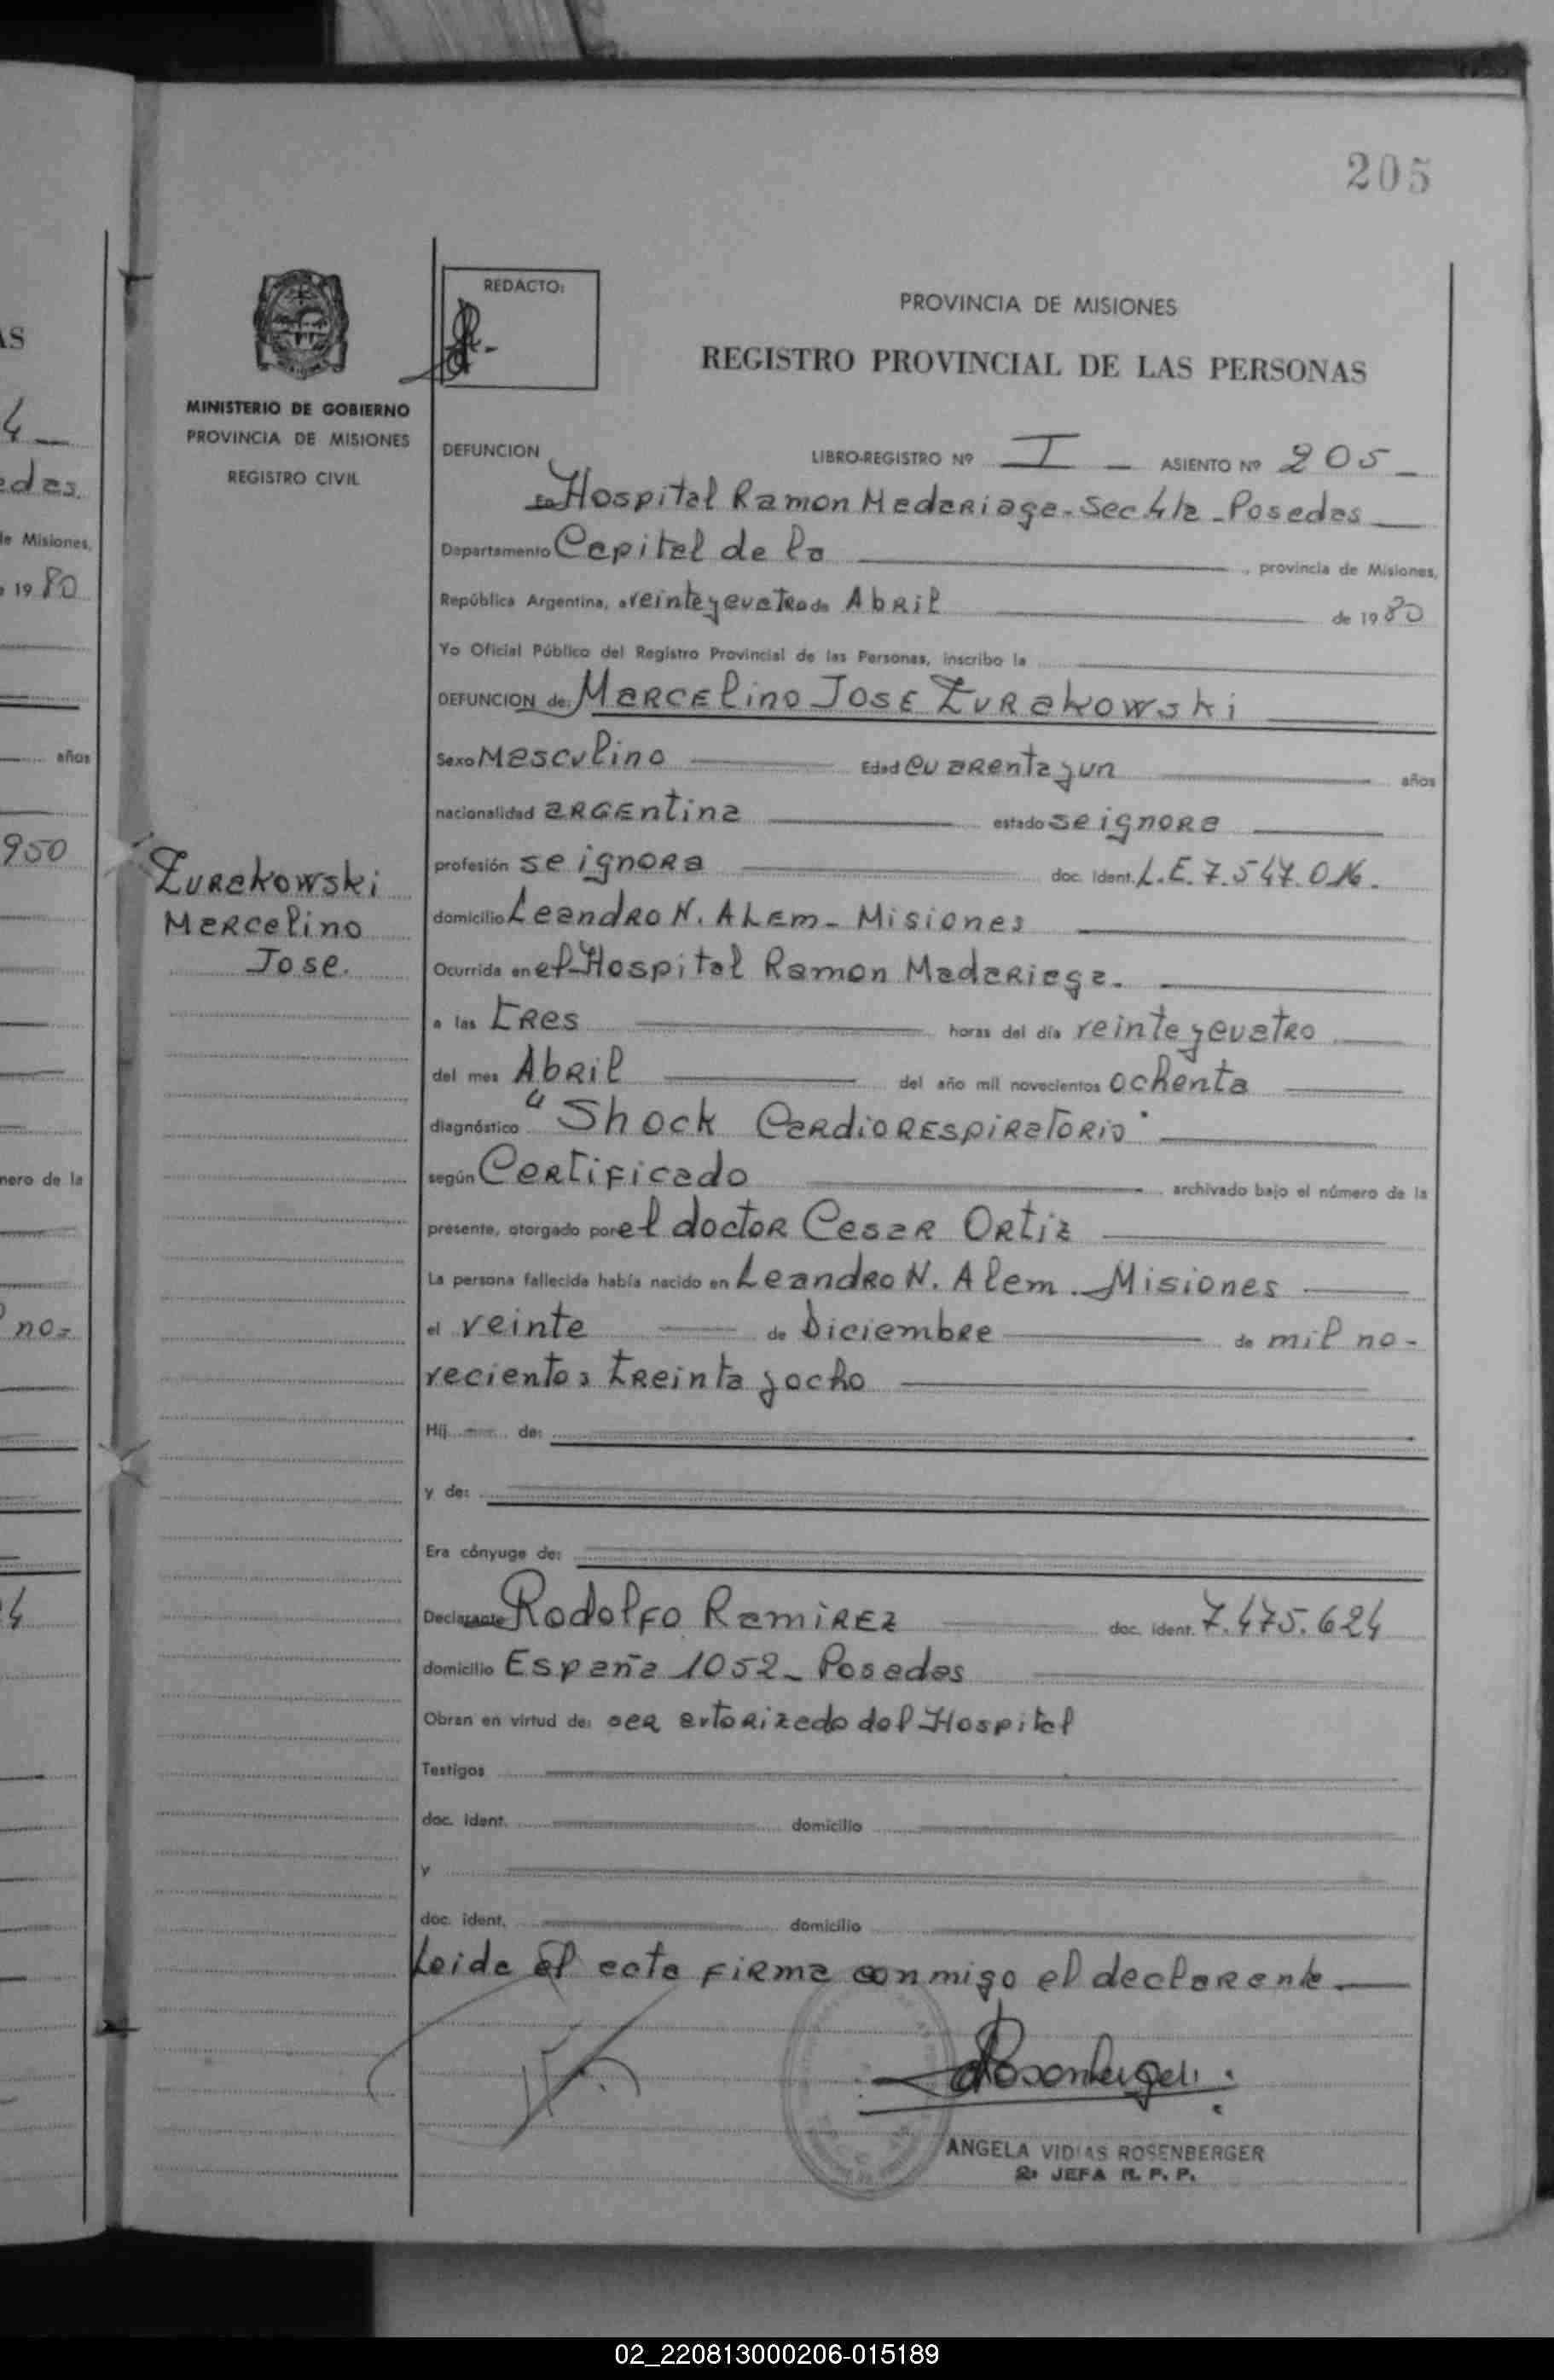 205
REDACTO:
PROVINCIA DE MISIONES
REGISTRO PROVINCIAL DE LAS PERSONAS
MINISTERIO DE GOBIERNO
PROVINCIA DE MISIONES
REGISTRO CIVIL
DEFUNCION LIBRO-REGISTRO Nº I - ASIENTO Nº 205-
En Hospital Ramon Madariaga - Sec. 4ta - Posadas
Departamento Capital de la , provincia de Misiones,
República Argentina, a veinte y cuatro de Abril de 1980
Yo Oficial Público del Registro Provincial de las Personas, inscribo la
DEFUNCION de: Marcelino Jose Zurakowski
Sexo Masculino Edad cuarenta y un años
nacionalidad argentina estado se ignora
profesión se ignora doc. Ident. L.E. 7.547.016.
domicilio Leandro N. Alem - Misiones
Ocurrida en el Hospital Ramon Madariaga.
a las tres horas del día veinte y cuatro
del mes Abril del año mil novecientos ochenta
diagnóstico "Shock Cardiorespiratorio"
según Certificado archivado bajo el número de la
presente, otorgado por el doctor Cesar Ortiz
La persona fallecida había nacido en Leandro N. Alem - Misiones
el veinte de Diciembre de mil no-
vecientos treinta y ocho
Hij de:
y de:
Era cónyuge de:
Declarante Rodolfo Ramirez doc. ident. 7.475.624
domicilio España 1052 - Posadas
Obran en virtud de: ser autorizado del Hospital
Testigos
doc. ident. domicilio
y
doc. ident. domicilio
Leida el acta firma conmigo el declarante
Zurakowski
Marcelino
Jose.
Rosenberger
ANGELA VIDIAS ROSENBERGER
2ª JEFA R. P. P.
AS
4
edas.
de Misiones,
1980
años
950
mero de la
no-
24
02_220813000206-015189